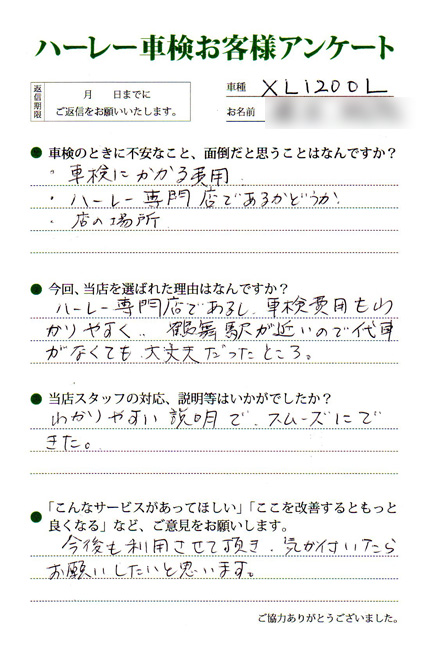 ハーレー車検お客様アンケート
返信期限
月　日までに
ご返信をお願いいたします。
車種 XL1200L
お名前
● 車検のときに不安なこと、面倒だと思うことはなんですか？
・車検にかかる費用
・ハーレー専門店であるかどうか
・店の場所
● 今回、当店を選ばれた理由はなんですか？
ハーレー専門店であるし、車検費用もわ
かりやすく、鶴舞駅が近いので代車
がなくても大丈夫だったところ。
● 当店スタッフの対応、説明等はいかがでしたか？
わかりやすい説明で、スムーズにで
きた。
● 「こんなサービスがあってほしい」「ここを改善するともっと
良くなる」など、ご意見をお願いします。
今後も利用させて頂き、気が付いたら
お願いしたいと思います。
ご協力ありがとうございました。